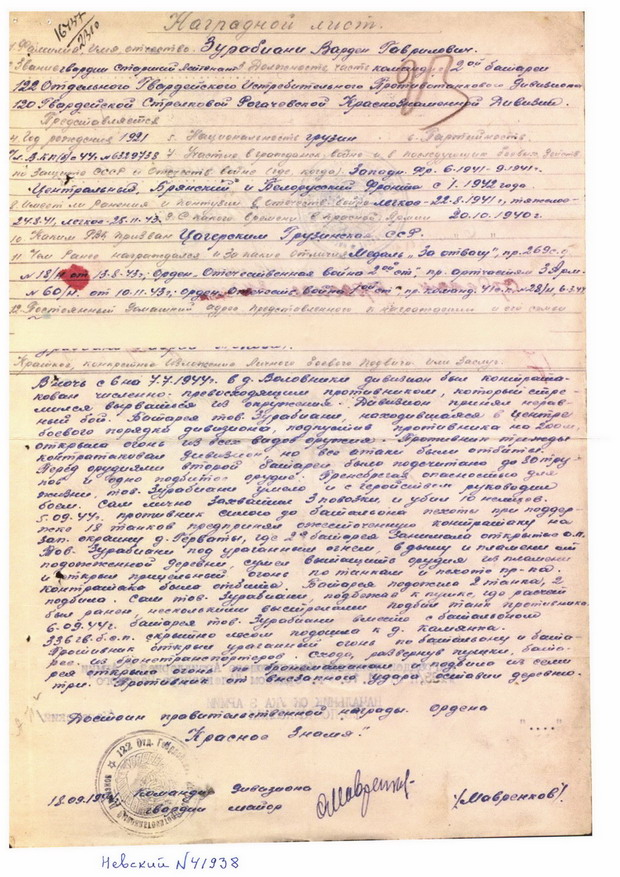 16437
2310
Наградной лист.
1. Фамилия имя отчество. Зурабиани Варден Гаврилович.
2. Звание гвардии Старший Лейтенант 3. Должность часть команд. 2ой батареи
122 Отдельного Гвардейского Истребительного Противотанкового Дивизиона
120 Гвардейской Стрелковой Рогачовской Краснознаменной Дивизии.
Представляется
4. Год рождения 1921 5. Национальность грузин 6. Партийность
Чл. ВКП(б) с 44г. № 6329738 7. Участие в гражданск. войне и в последующих боевых действ.
по защите СССР и Отечеств. войне (где, когда). Западн. Фр. 6.1941-9.1941г.
Центральный, Брянский и Белорусский Фронта с 1.1942 года.
8. Имеет ли ранения и контузии в отечеств. войне легкое-22.8.1941г, тяжело-
24.8.41, легкое-28.11.43. 9. С какого времени в Красной Армии 20.10.1940г.
10. Каким РВК призван Цагерским Грузинской ССР.
11. Чем ранее награждался и за какие отличия Медаль „За отвагу", пр. 269 с.д.
№ 18/н от 13.8.43г, Орден. Отечественная война 2ой ст" пр. артчастям 3 Арм.
№ 60/н. от 10.11.43г, Орден. Отечеств. война 1ой ст" пр. команд. 41 с.к. № 28/н, 6.3.44
12. Постоянный домашний адрес представленного к награждению и его семьи
Краткое, конкретное изложение личного боевого подвига или заслуг.
В ночь с 6 на 7.7.1944г. в д. Воловники дивизион был контрата-
кован численно-превосходящим противником, который стре-
мился вырваться из окружения. Дивизион принял нерав-
ный бой. Батарея тов. Зурабиани, находившаяся в центре
боевого порядка дивизиона, подпустив противника на 200м,
открыла огонь из всех видов оружия. Противник трижды
контратаковал дивизион, но все атаки были отбиты.
Перед орудиями второй батареи было подсчитано до 80 тру-
пов и одно подбитое орудие. Пренебрегая опасностью для
жизни, тов. Зурабиани умело и с геройством руководил
боем. Сам лично захватил 3 повозки и убил 10 немцев.
5.09.44г. противник силою до батальона пехоты при поддер-
жке 18 танков предпринял ожесточенную контратаку на
зап. окраину д. Герваты, где 2я батарея занимала открытые о.п.
Тов. Зурабиани под ураганным огнем, в дыму и пламени от
подожженной деревни сумел вытащить орудия из пламени
и открыл прицельный огонь по танкам и пехоте пр-ка.
Контратака была отбита. Батарея подожгла 2 танка, 2
подбила. Сам тов. Зурабиани, подбежав к пушке, где расчет
был ранен, несколькими выстрелами подбил танк противника.
6.09.44г. батарея тов. Зурабиани вместе с батальоном
336 гв. с.п. скрытно лесом подошла к д. Каменка.
Противник открыл ураганный огонь по батальону и бата-
рее из бронетранспортеров. Сходу развернув пушки, бата-
рея открыла огонь по бронемашинам и подбила из семи
три. Противник от внезапного удара оставил деревню.
Достоин правительственной награды ордена
"Красное Знамя."
18.09.1944 Командир Дивизиона
гвардии майор
/Мавренков/.
Невский №41938